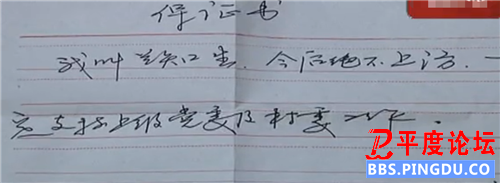 保证书
我叫 口生. 今后绝不上访. 一
定支持上级党委及村委工作.
平度论坛
BBS.PINGDU.CC